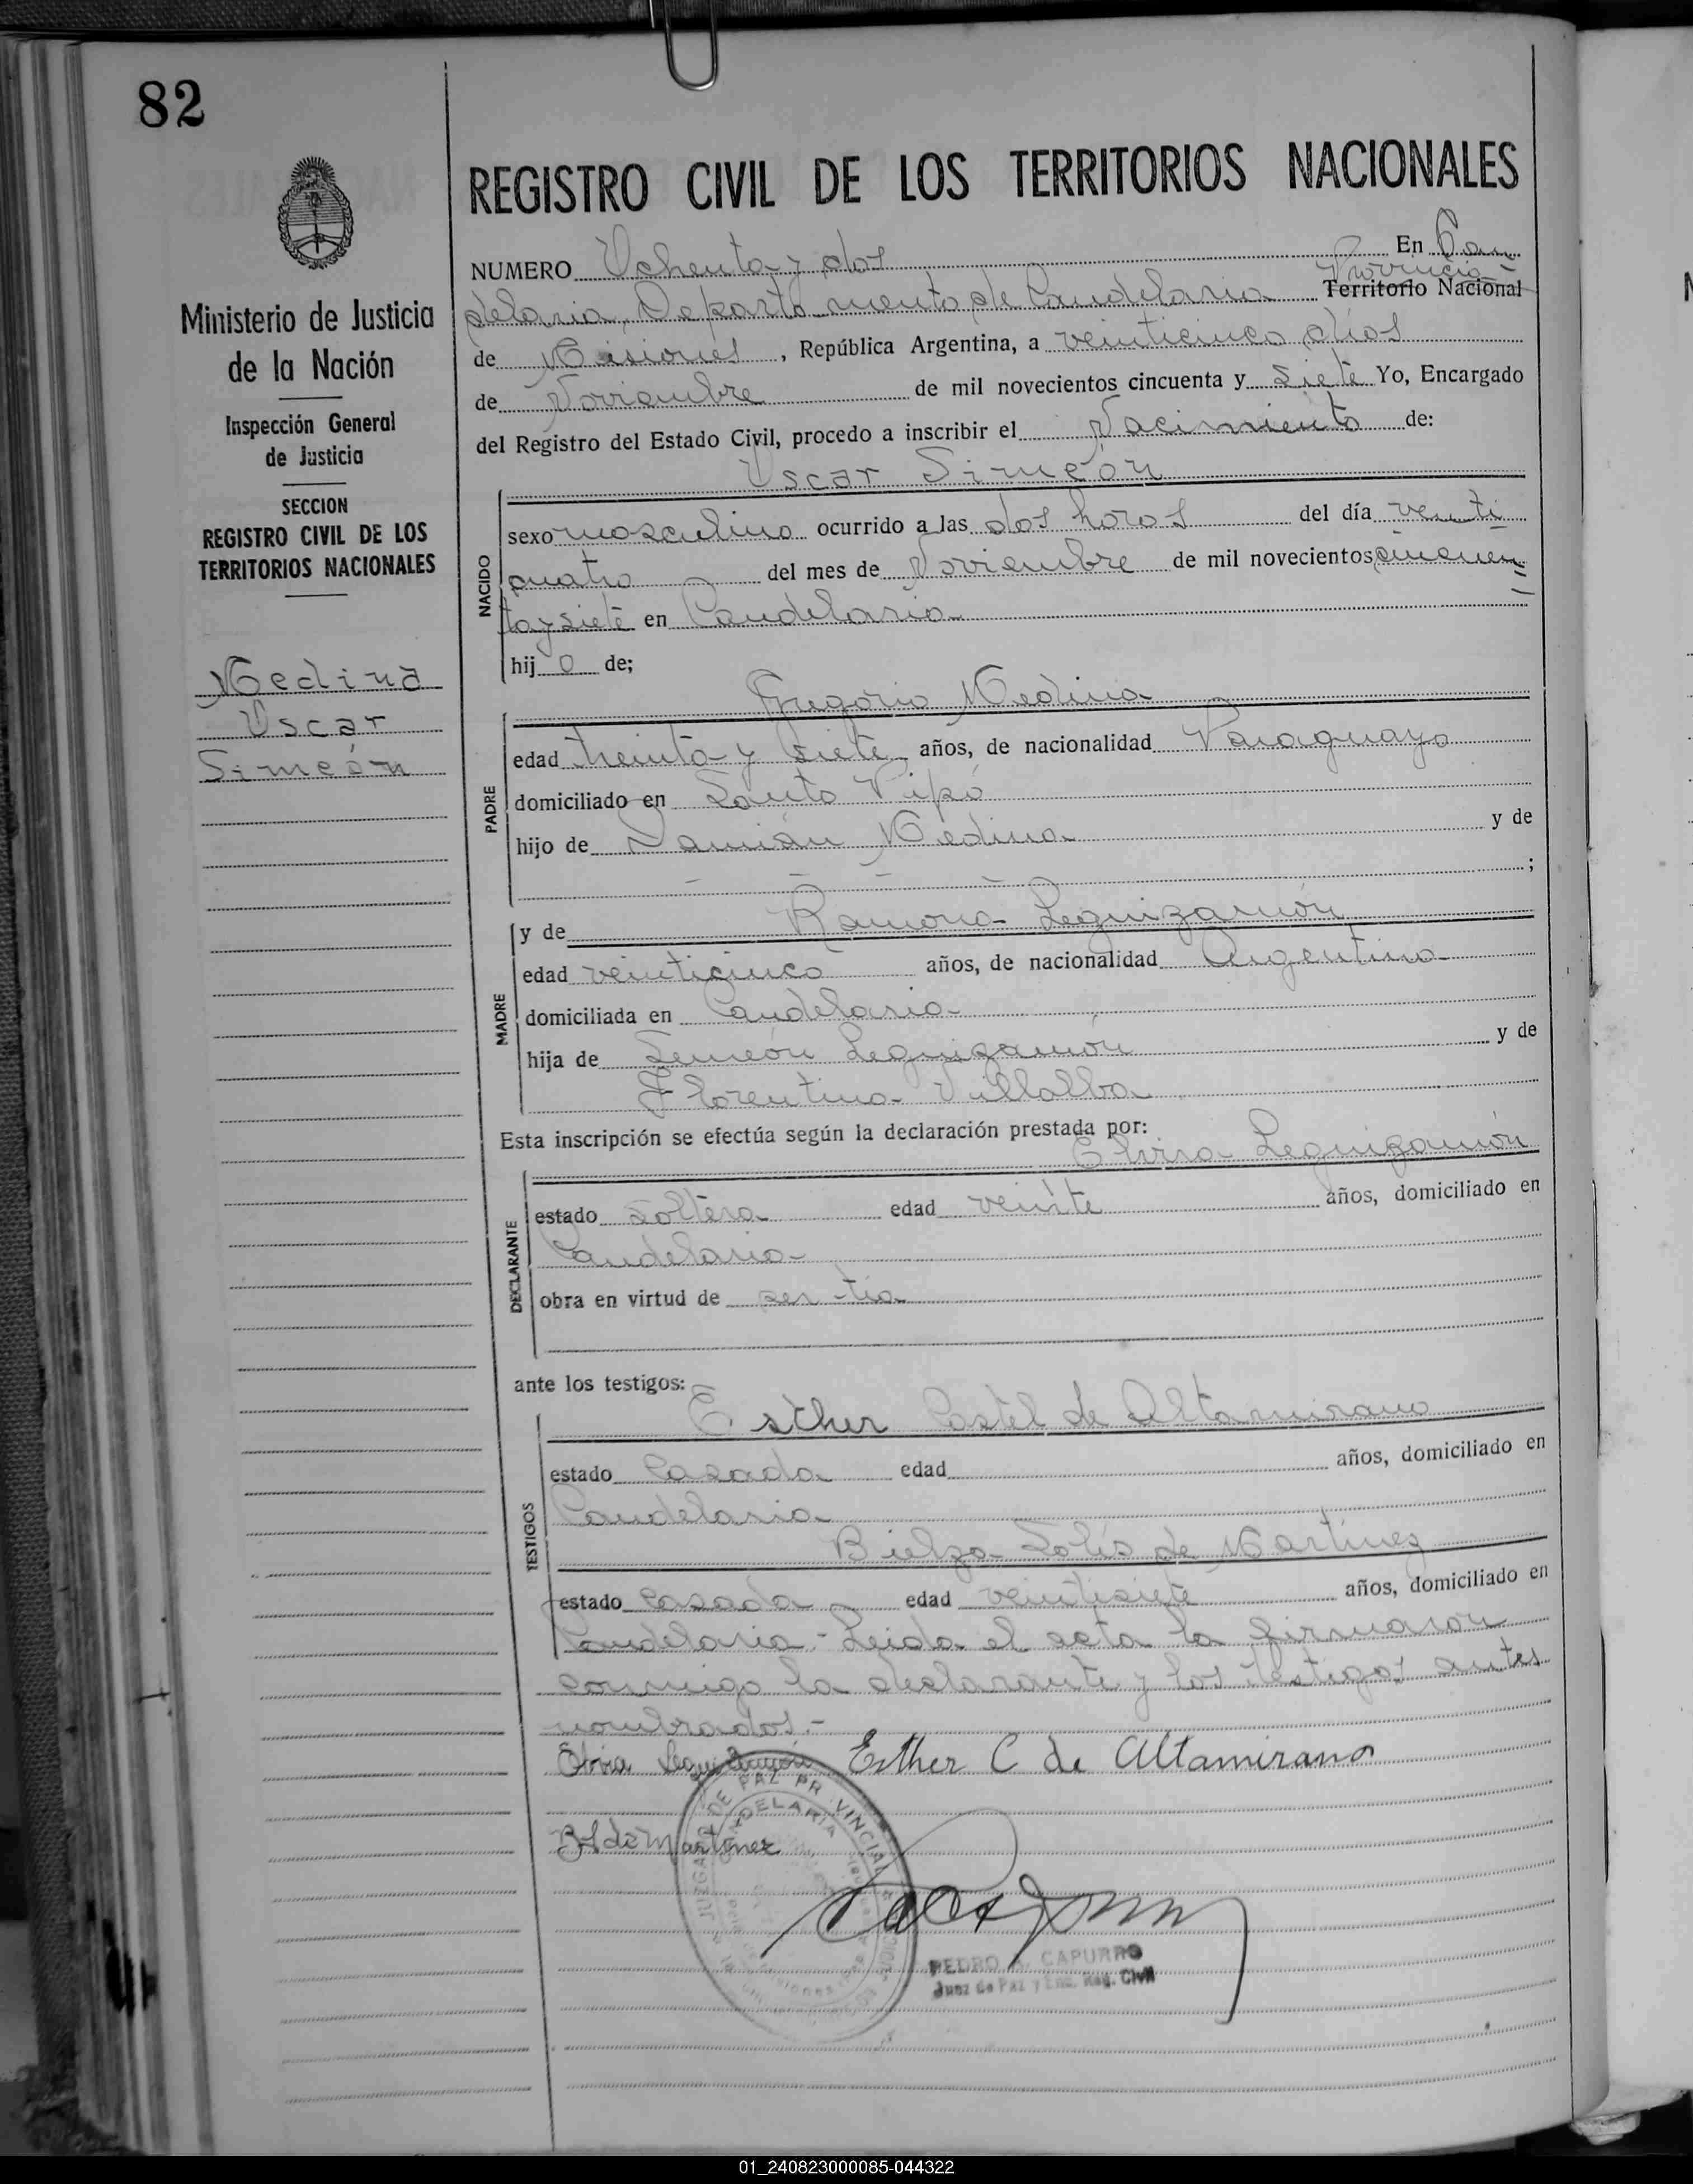 82
REGISTRO CIVIL DE LOS TERRITORIOS NACIONALES
Ministerio de Justicia
de la Nación
Inspección General
de Justicia
SECCION
REGISTRO CIVIL DE LOS
TERRITORIOS NACIONALES
Medina
Oscar
Simeón
NUMERO Ochenta y dos En Can
Provincia
delaria, Departamento de Candelaria Territorio Nacional
de Misiones, República Argentina, a veinticinco días
de Noviembre de mil novecientos cincuenta y siete Yo, Encargado
del Registro del Estado Civil, procedo a inscribir el Nacimiento de:
Oscar Simeón
NACIDO
sexo masculino ocurrido a las dos horas del día veinti
cuatro del mes de Noviembre de mil novecientos cincuen=
ta y siete en Candelaria
hij o de;
Gregorio Medina
PADRE
edad treinta y siete años, de nacionalidad Paraguaya
domiciliado en Santo Pipó
hijo de Damián Medina y de
- - - - ;
MADRE
y de Ramona Leguizamón
edad veinticinco años, de nacionalidad Argentina
domiciliada en Candelaria
hija de Simeón Leguizamón y de
Florentina Villalba
Esta inscripción se efectúa según la declaración prestada por:
Elvira Leguizamón
DECLARANTE
estado soltera edad veinte años, domiciliado en
Candelaria
obra en virtud de ser tía
ante los testigos:
Esther Castel de Altamirano
TESTIGOS
estado Casada edad años, domiciliado en
Candelaria
Solís de Martínez
estado casada edad veintisiete años, domiciliado en
Candelaria.- Leida el acta la firmaron
conmigo la declarante y los testigos antes
nombrados.-
Elvira Leguizamón Esther C de Altamirano
B S de Martinez
JUZGADO DE PAZ PROVINCIAL
CANDELARIA
PEDRO A. CAPURRO
Juez de Paz y Enc. Reg. Civil
01_240823000085-044322